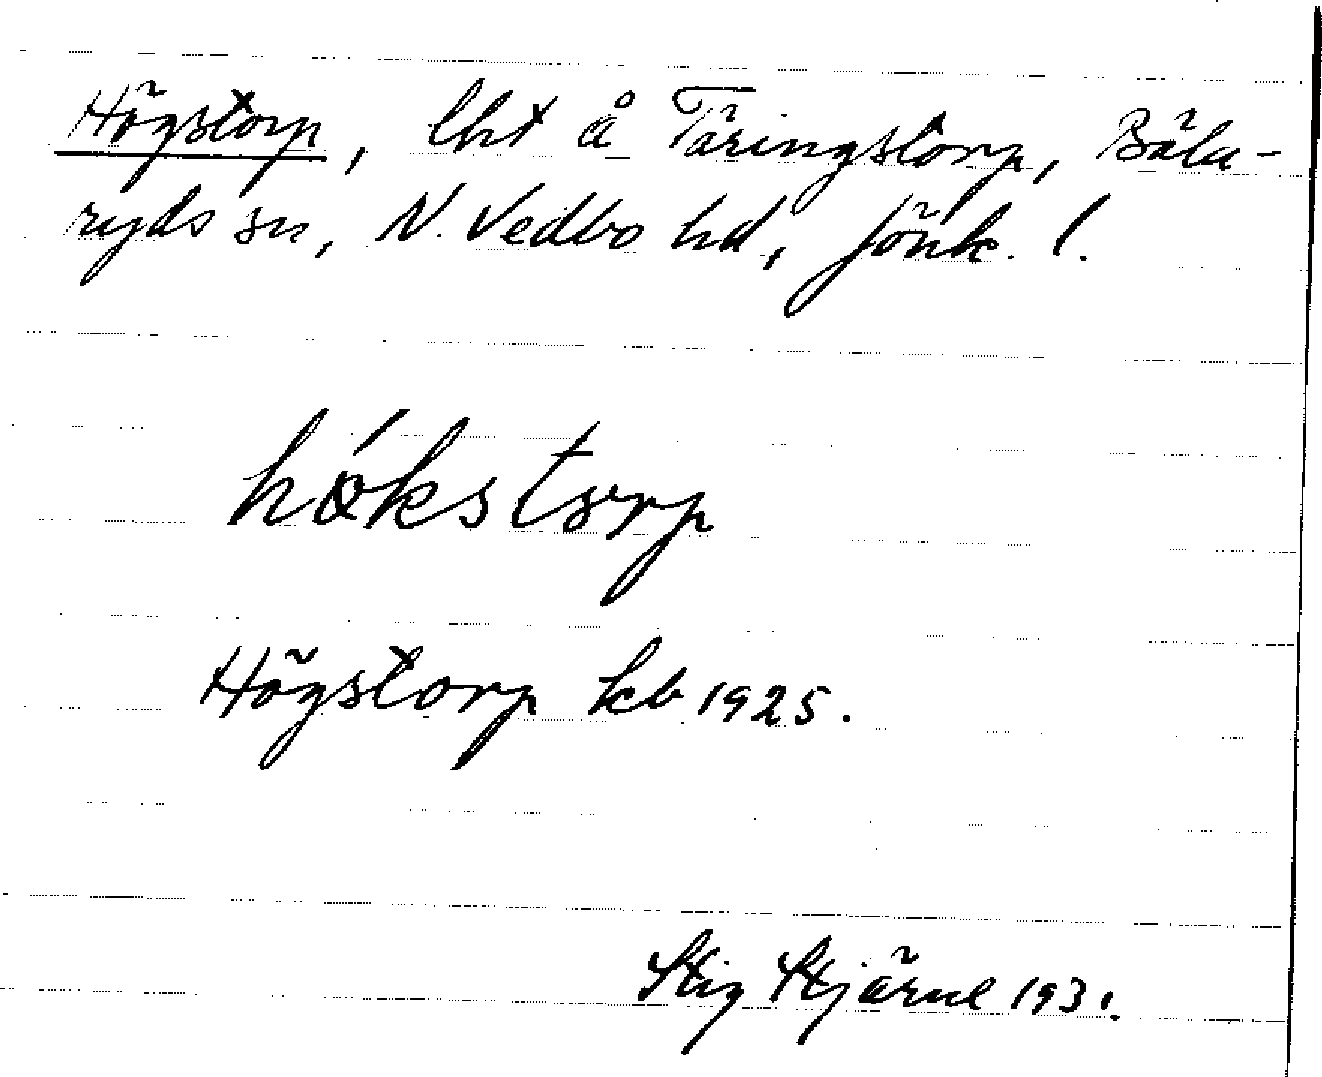 Högstorp, lht å Täringstorp, Bäla-
ryds sn, N. Vedbo hd, Jönk. l.
hǿkstorp
Högstorp kb 1925.
Stig Stjärne 1931.